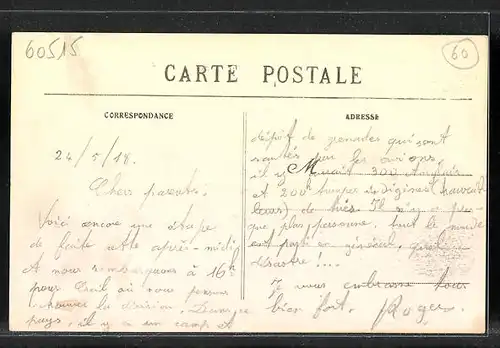 60515
60
CARTE POSTALE
CORRESPONDANCE
ADRESSE
24/5/18.
Chers parents.
Voici encore une étape
de faite cette après-midi
et nous rembarquons à 16h
pour Creil où nous pensons
trouver la division. Dans ce
pays, il y a un camp et
dépôt de grenades qui sont
sautés par les avions.
il y aurait 300
et 200 indigènes (travail
leurs) de tués. Il n'y a pres
que plus personne, tout le monde
est parti en général, quel
désastre !...
Je vous embrasse tous
bien fort. Roger